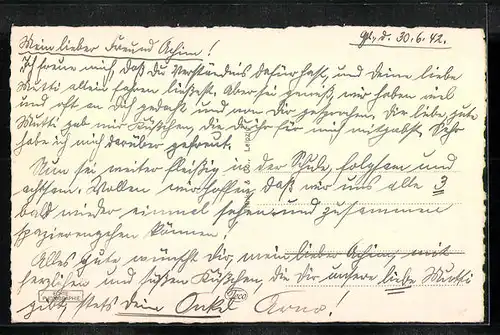 Gl., d. 30.6.42.
Mein lieber Freund Achim!
Ich freue mich daß Du Verständnis dafür hast, und Deine liebe
Mutti allein fahren ließest. Aber sei gewiß, wir haben viel
und oft an Dich gedacht und von Dir gesprochen. Die liebe, gute
Mutti gab mir Küßchen, die Du ihr für mich mitgabst. Sehr
habe ich mich darüber gefreut.
Nun sei weiter fleißig in der Schule, folgsam und
achtsam. Wollen wir hoffen, daß wir uns alle 3
bald wieder einmal sehen und zusammen
spazierengehen können.
Alles Gute wünscht Dir, mein lieber Achim, mit
herzlichen und süßen Küßchen, die Dir unsere liebe Mutti
gibt stets dein Onkel Arno!
PHOTOGRAPHIE